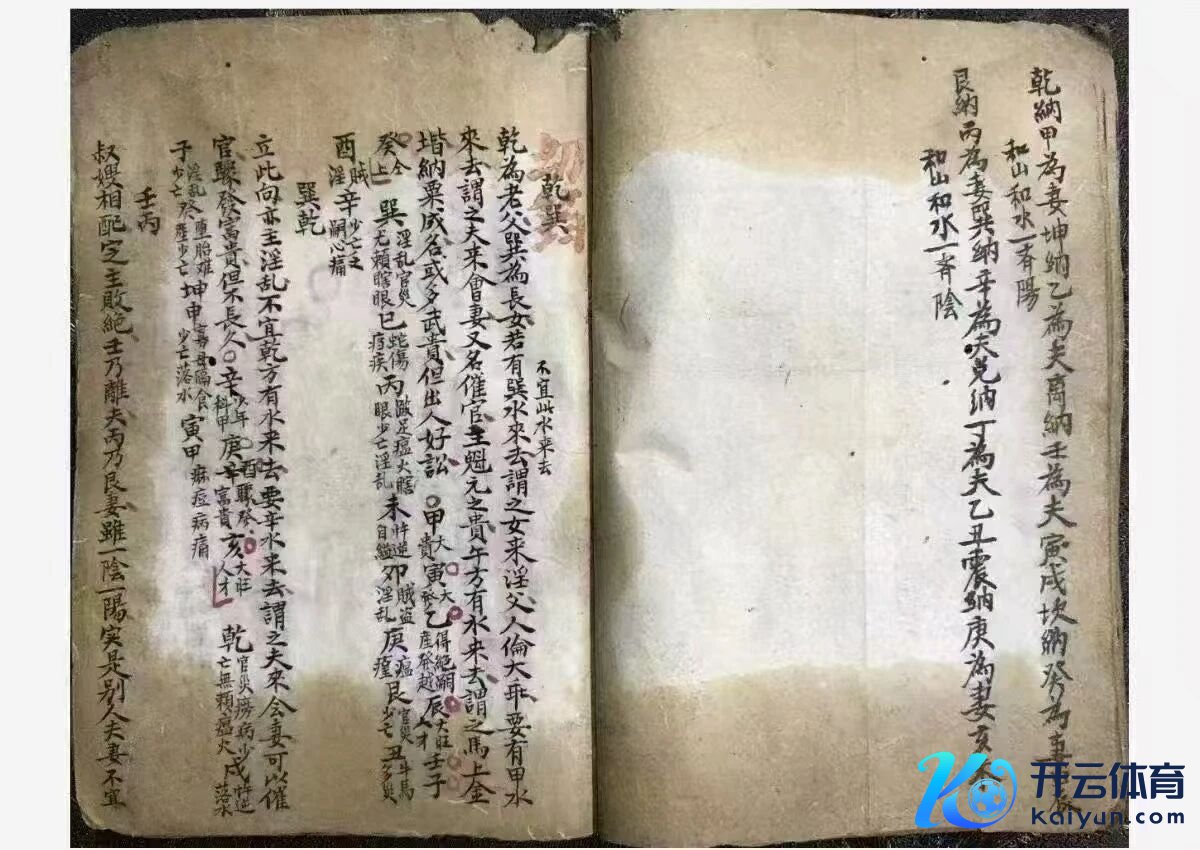 乾納甲為妻坤納乙為夫離納壬為夫寅戌坎納癸為妻
和山和水一斉陽
艮納丙為妻巽納辛為夫兌納丁為夫乙丑震納庚為妻亥
和山和水一斉陰
乾巽
不宜此水来去
乾為老父巽為長女若有巽水來去謂之女来淫父人倫大乖要有甲水
來去謂之夫来會妻又名催官主魁元之貴午方有水来去謂之馬上金
堦納粟成名或多武貴但出人好訟○甲大貴寅大發乙得絕嗣産發越辰大旺人才壬子
癸全上巽淫乱官災无賴瞎眼巳蛇傷痔疾丙跛足瘟火瞎眼少亡淫乱未忤逆自縊卯賊盗淫乱庚瘟㾮艮官災少亡丑牛馬多災
酉賊淫辛少亡乏嗣心痛
巽乾
立此向亦主淫乱不宜乾方有水来去要辛水来去謂之夫來会妻可以催
官驟發富貴但不長久○辛少年科甲庚辛酉驟發富貴亥大旺人才乾官災癆病少亡無賴瘟火戌忤逆落水
子淫乱少亡癸堕胎难産少亡坤申寡母隔食少亡落水寅甲麻痘病痛
壬丙
叔嫂相配定主敗絕壬乃離夫丙乃艮妻雖一陰一陽実是别人夫妻不宜
开云体育
kaiyun.com